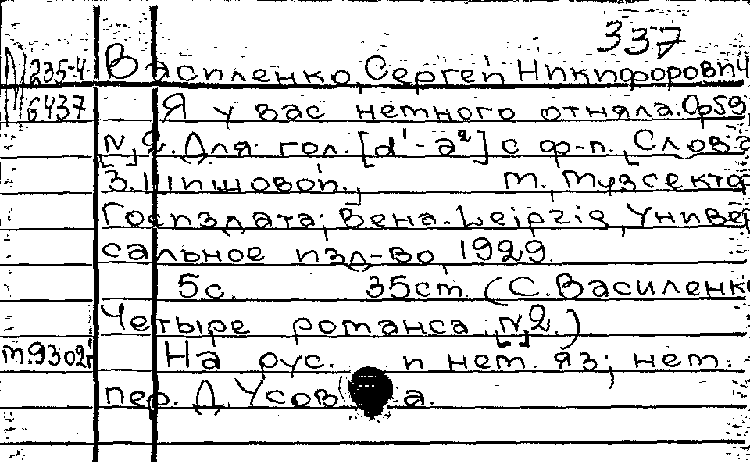 337
235-4 Василенко, Сергей Никифорович
6437 Я у вас немного отняла. Op59
N, 2. Для гол. [d'-a²] с ф-п. Слова
З. Шишовой. М. Музсектор
Госиздата; Вена-Leipzig, Универ
сальное изд-во, 1929.
5с. 35cm. (С. Василенко
Четыре романса N,2.)
м9302г На рус. и нем. яз; нем.
пер. Д. Усова.